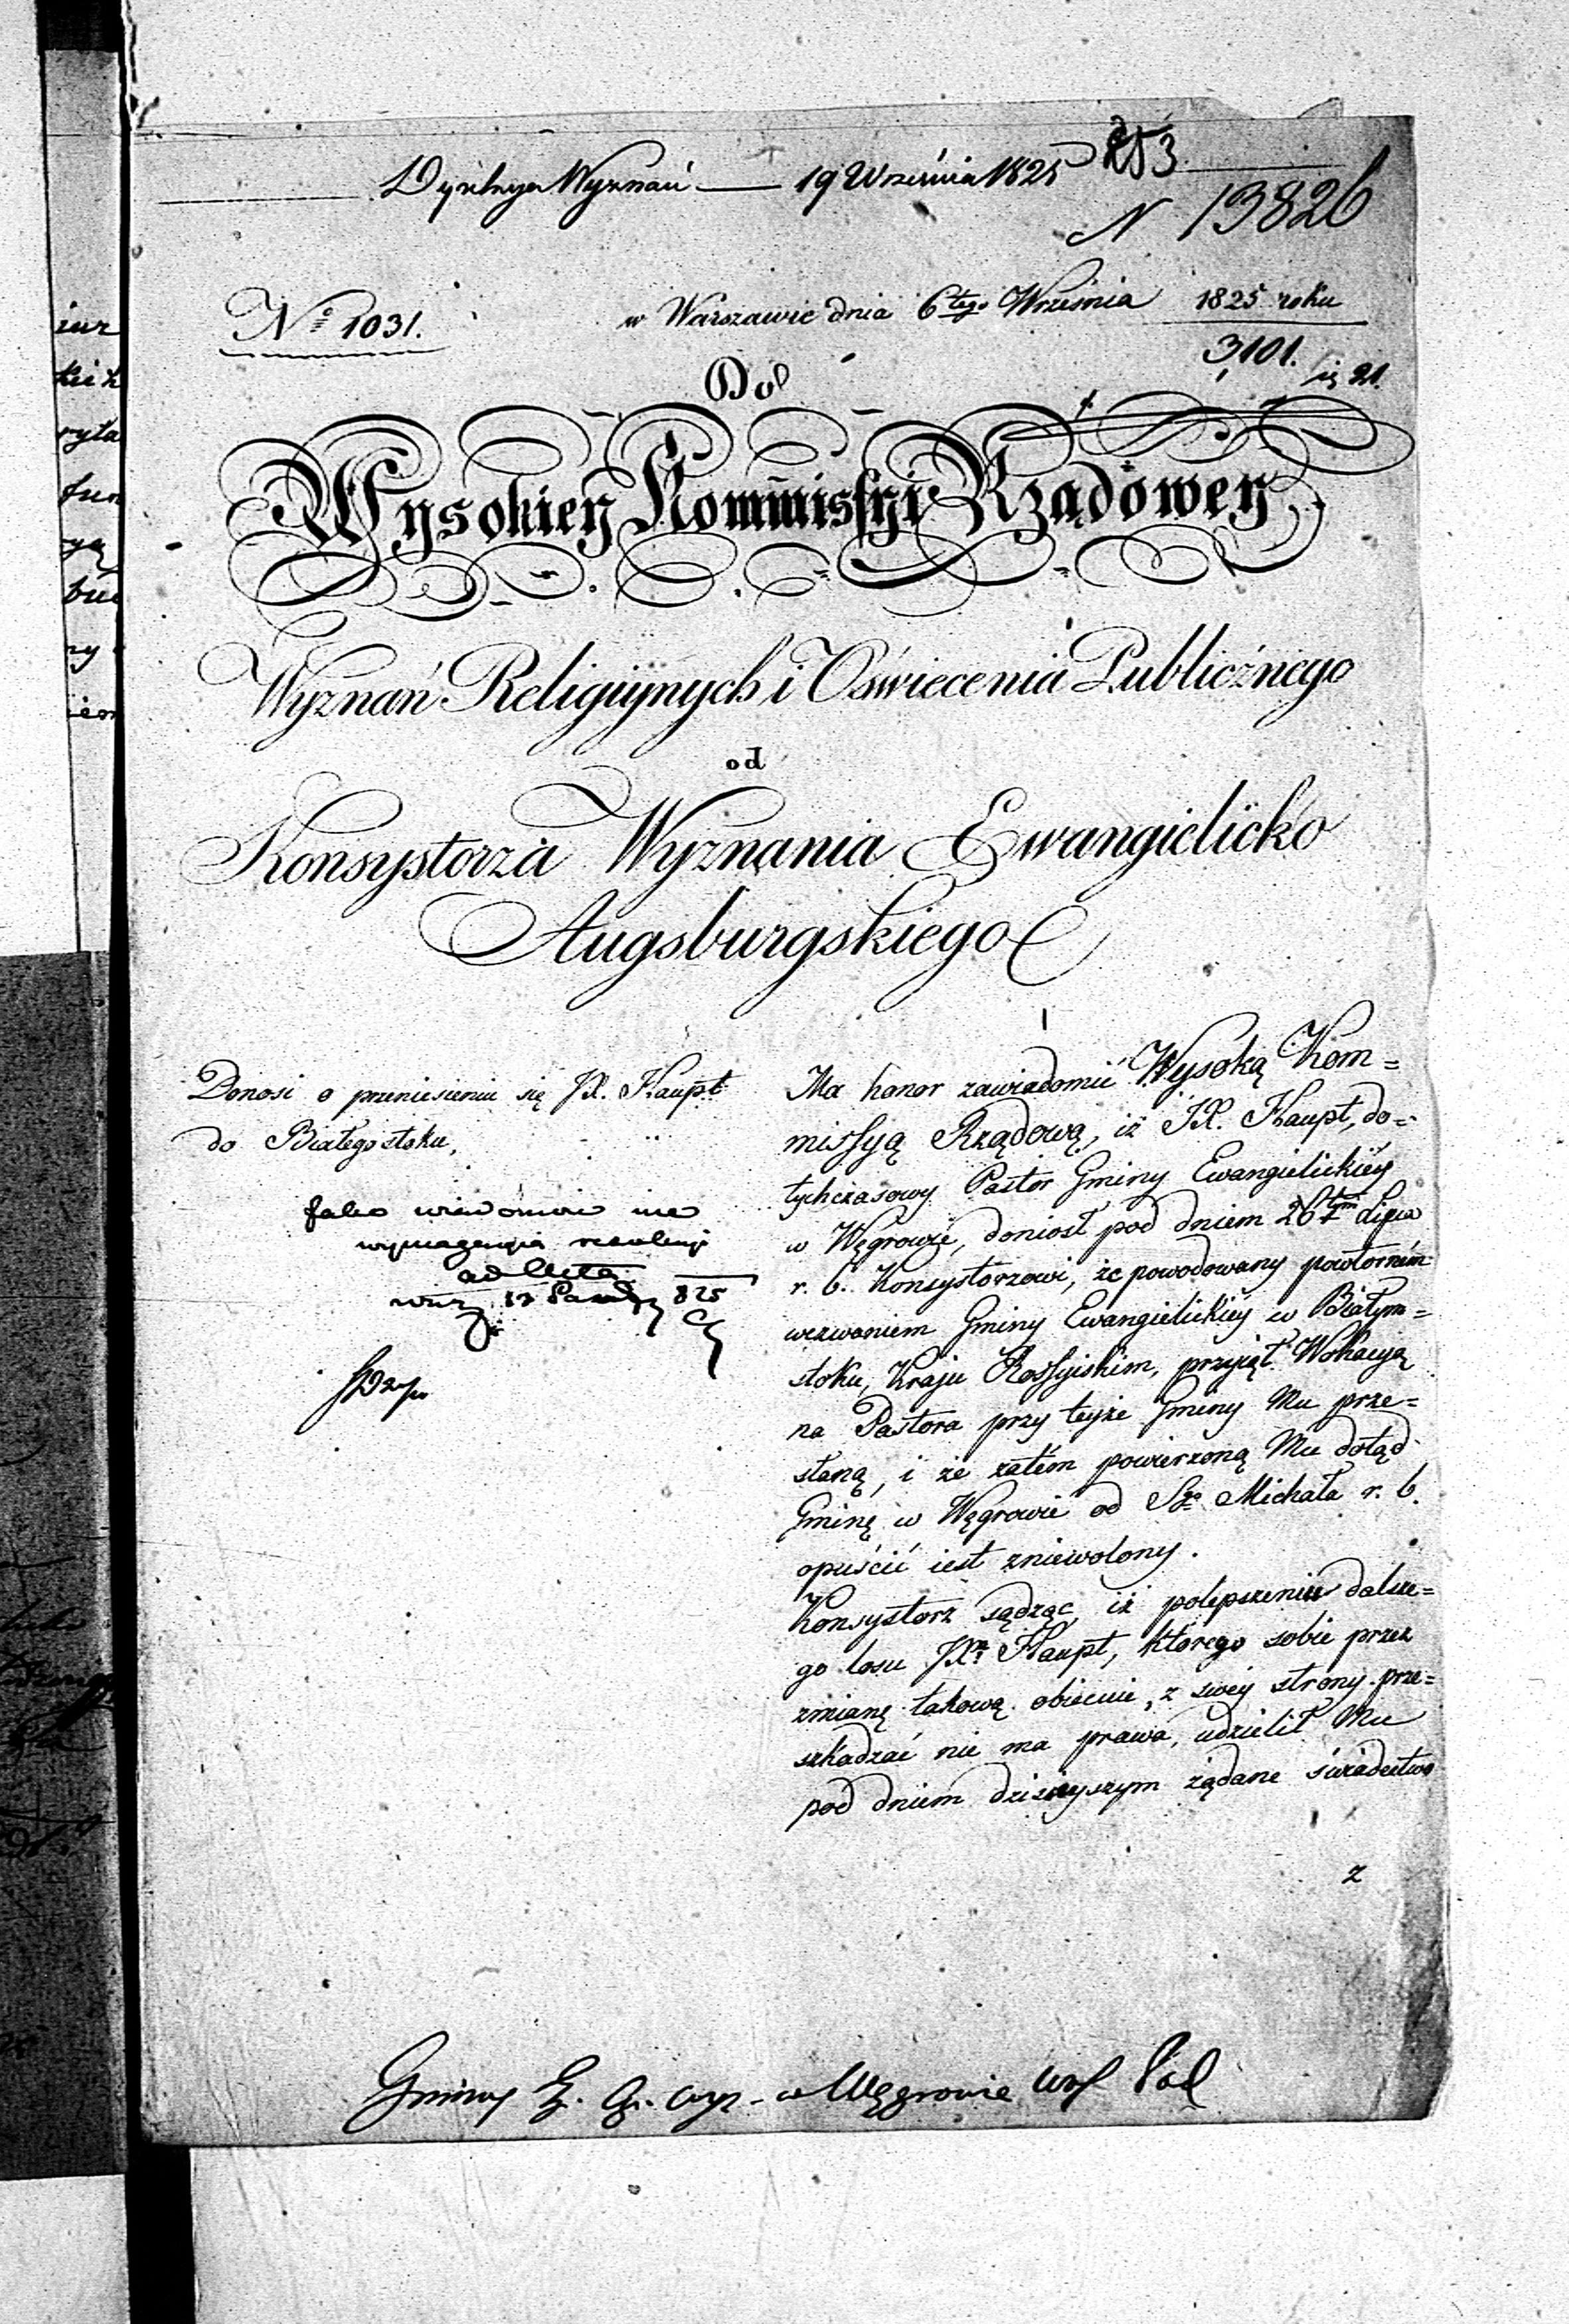 253
Dyrekcya Wyznań — 19 Września 1825
N 13826
No 1031.
w Warszawie dnia 6tego Września 1825 roku
3,101.
Do
Wysokiey Kommissyi Rządowey
Wyznań Religiynych i Oświecenia Publicznego
od
Konsystorza Wyznania Ewangielicko
Augsburgskiego
Donosi o przeniesieniu się JX. Haupt
do Białegostoku,
Jako wiadomość nie
wymagająca rezolucyi
ad acta
825
Ma honor zawiadomić Wysoką Kom=
missyą Rządową, iż JX. Haupt, do=
tychczasowy Pastor Gminy Ewangielickiéy
w Węgrowie, doniosł pod dniem 26tym Lipca
r. b. Konsystorzowi, że powodowany powtórném
wezwaniem Gminy Ewangielickiéy w Białym=
stoku, Kraju Rossyiskim, przyiął Wokacyą
na Pastora przy teyże Gminy Mu prze=
słaną, i że zatém powierzoną Mu dotąd
Gminę w Węgrowie od Sgo Michała r. b.
opuścić iest zniewolony.
Konsystorz sądząc, iż polepszeniu dalsze=
go losu JXa Haupt, którego sobie przez
zmianę takową obiecuie, z swey strony prze=
szkadzać nie ma prawa, udzielił Mu
pod dniem dzisieyszym żądane świadectwo
z
Gminy E. A. wyz. w Węgrowie Woj Pod